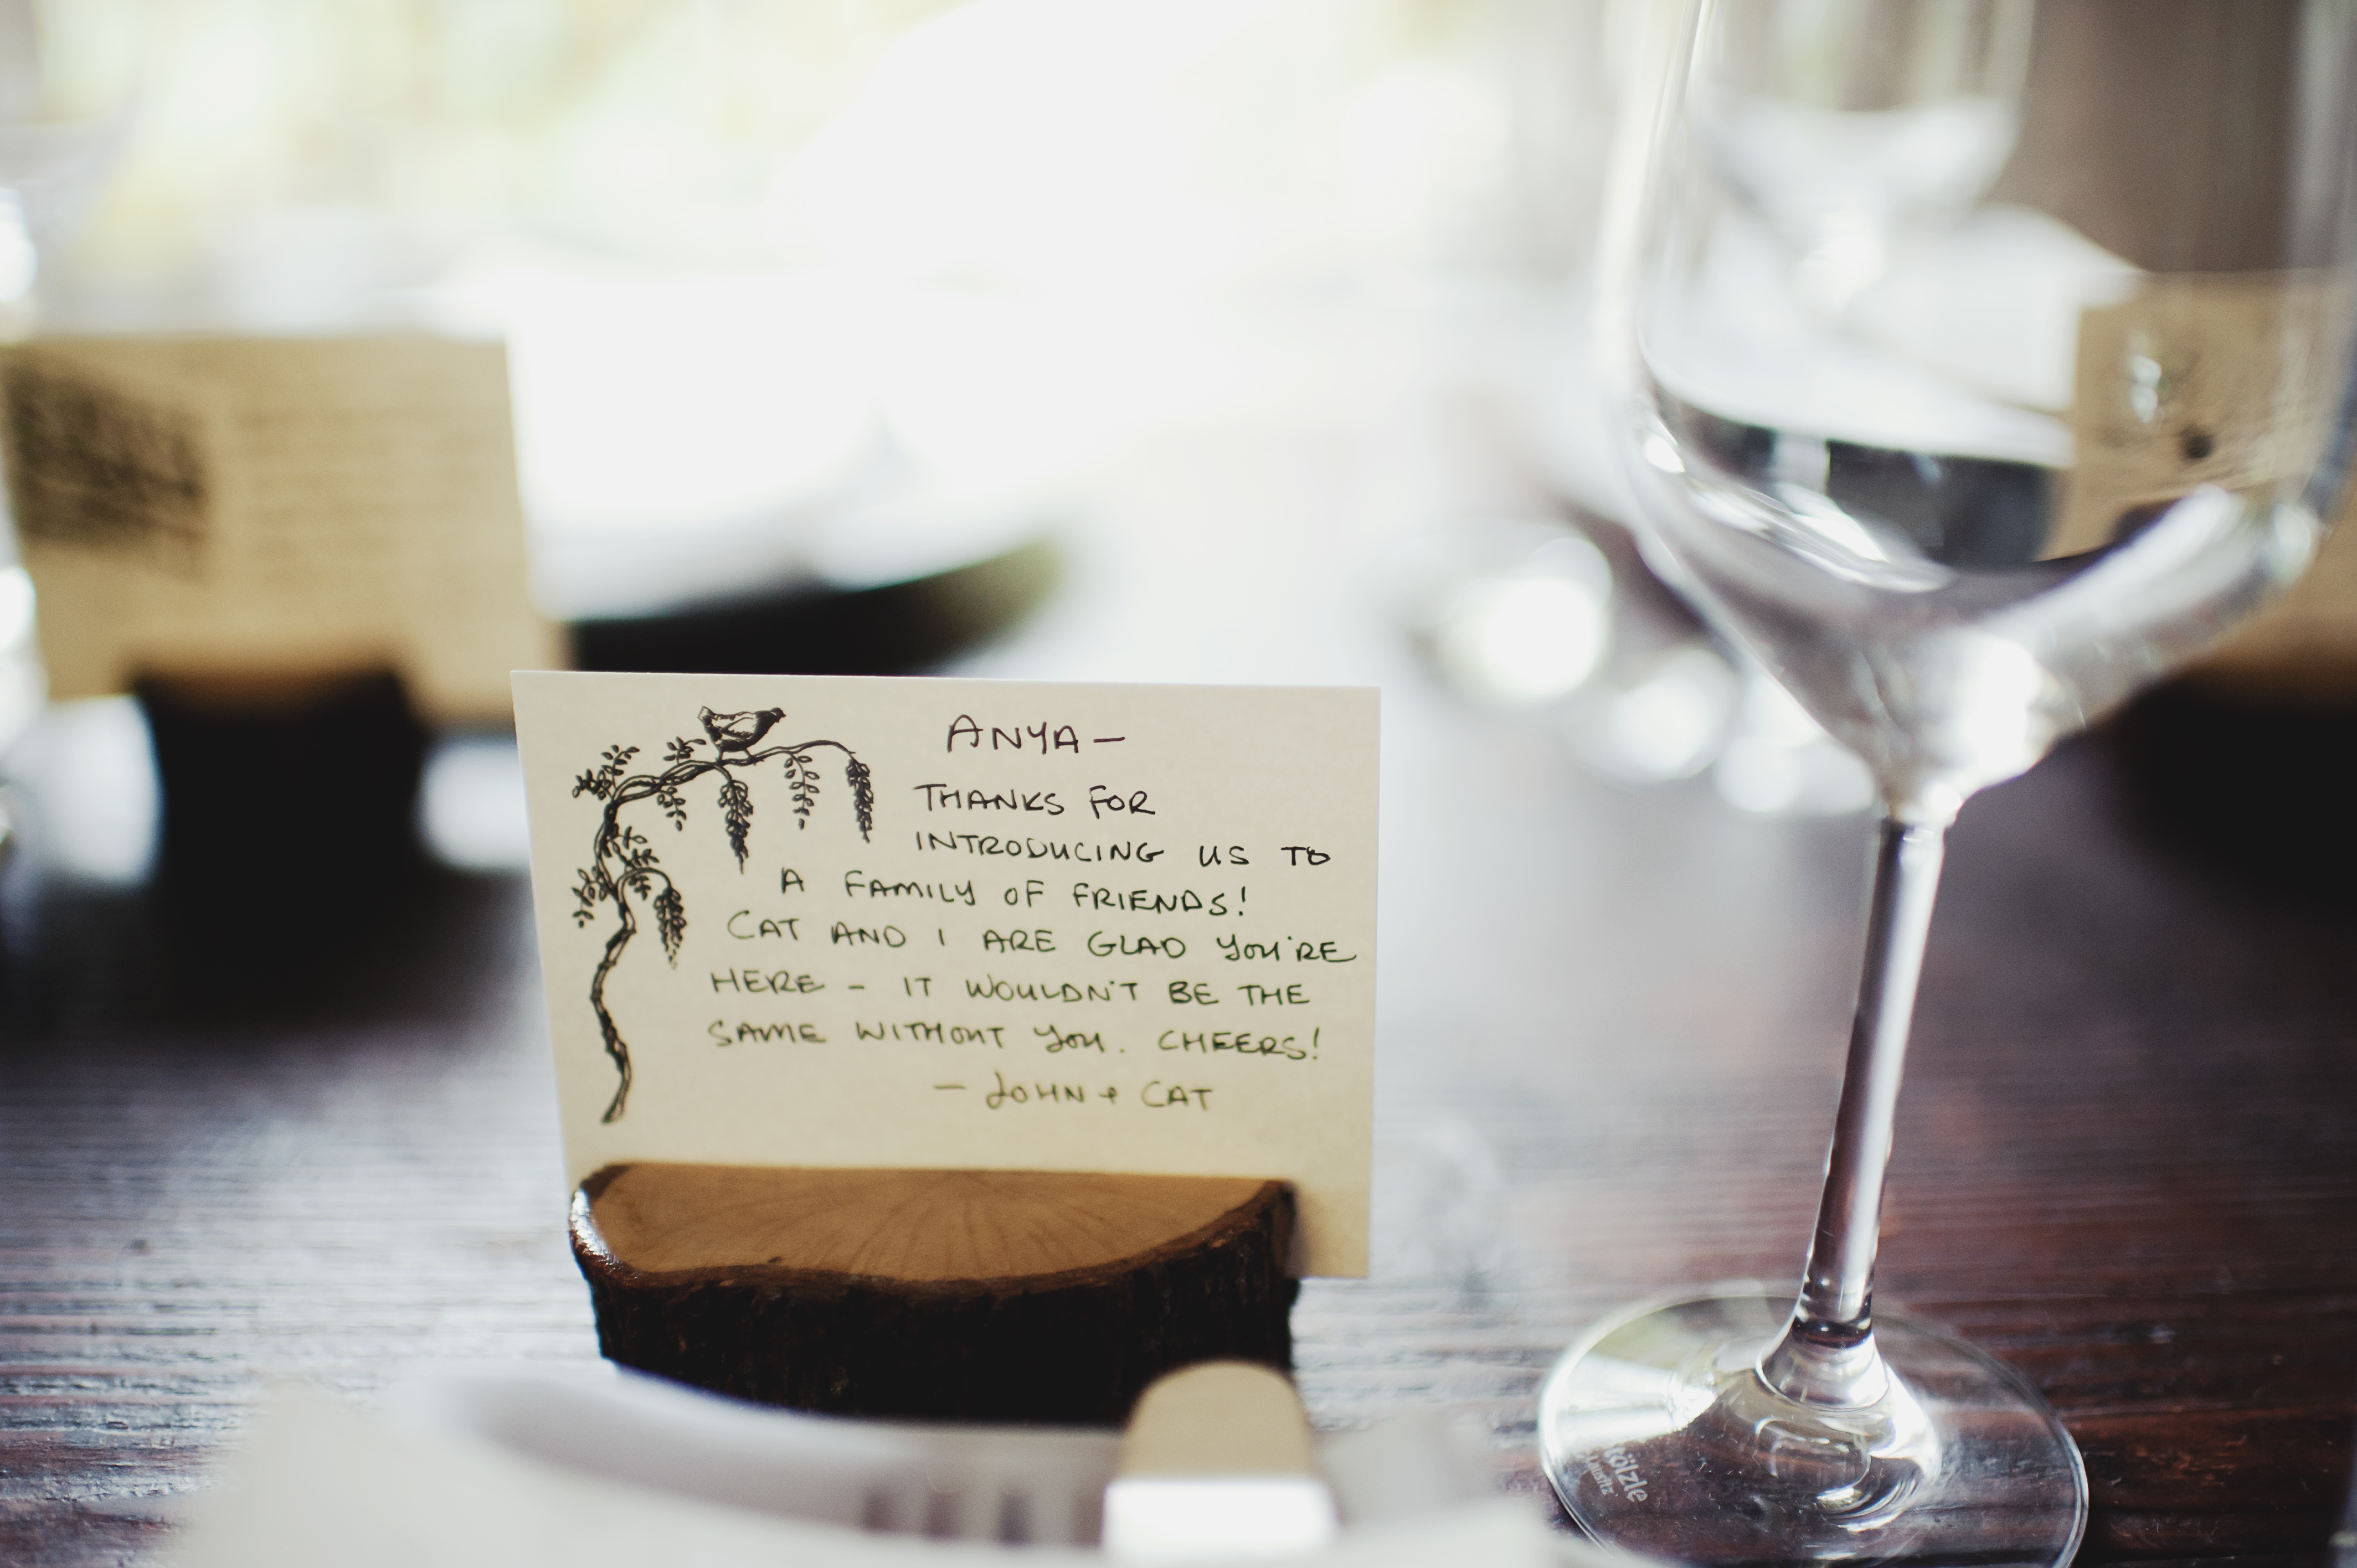 ANYA—
THANKS FOR
INTRODUCING US TO
A FAMILY OF FRIENDS!
CAT AND I ARE GLAD YOU'RE
HERE - IT WOULDN'T BE THE
SAME WITHOUT YOU. CHEERS!
— JOHN + CAT